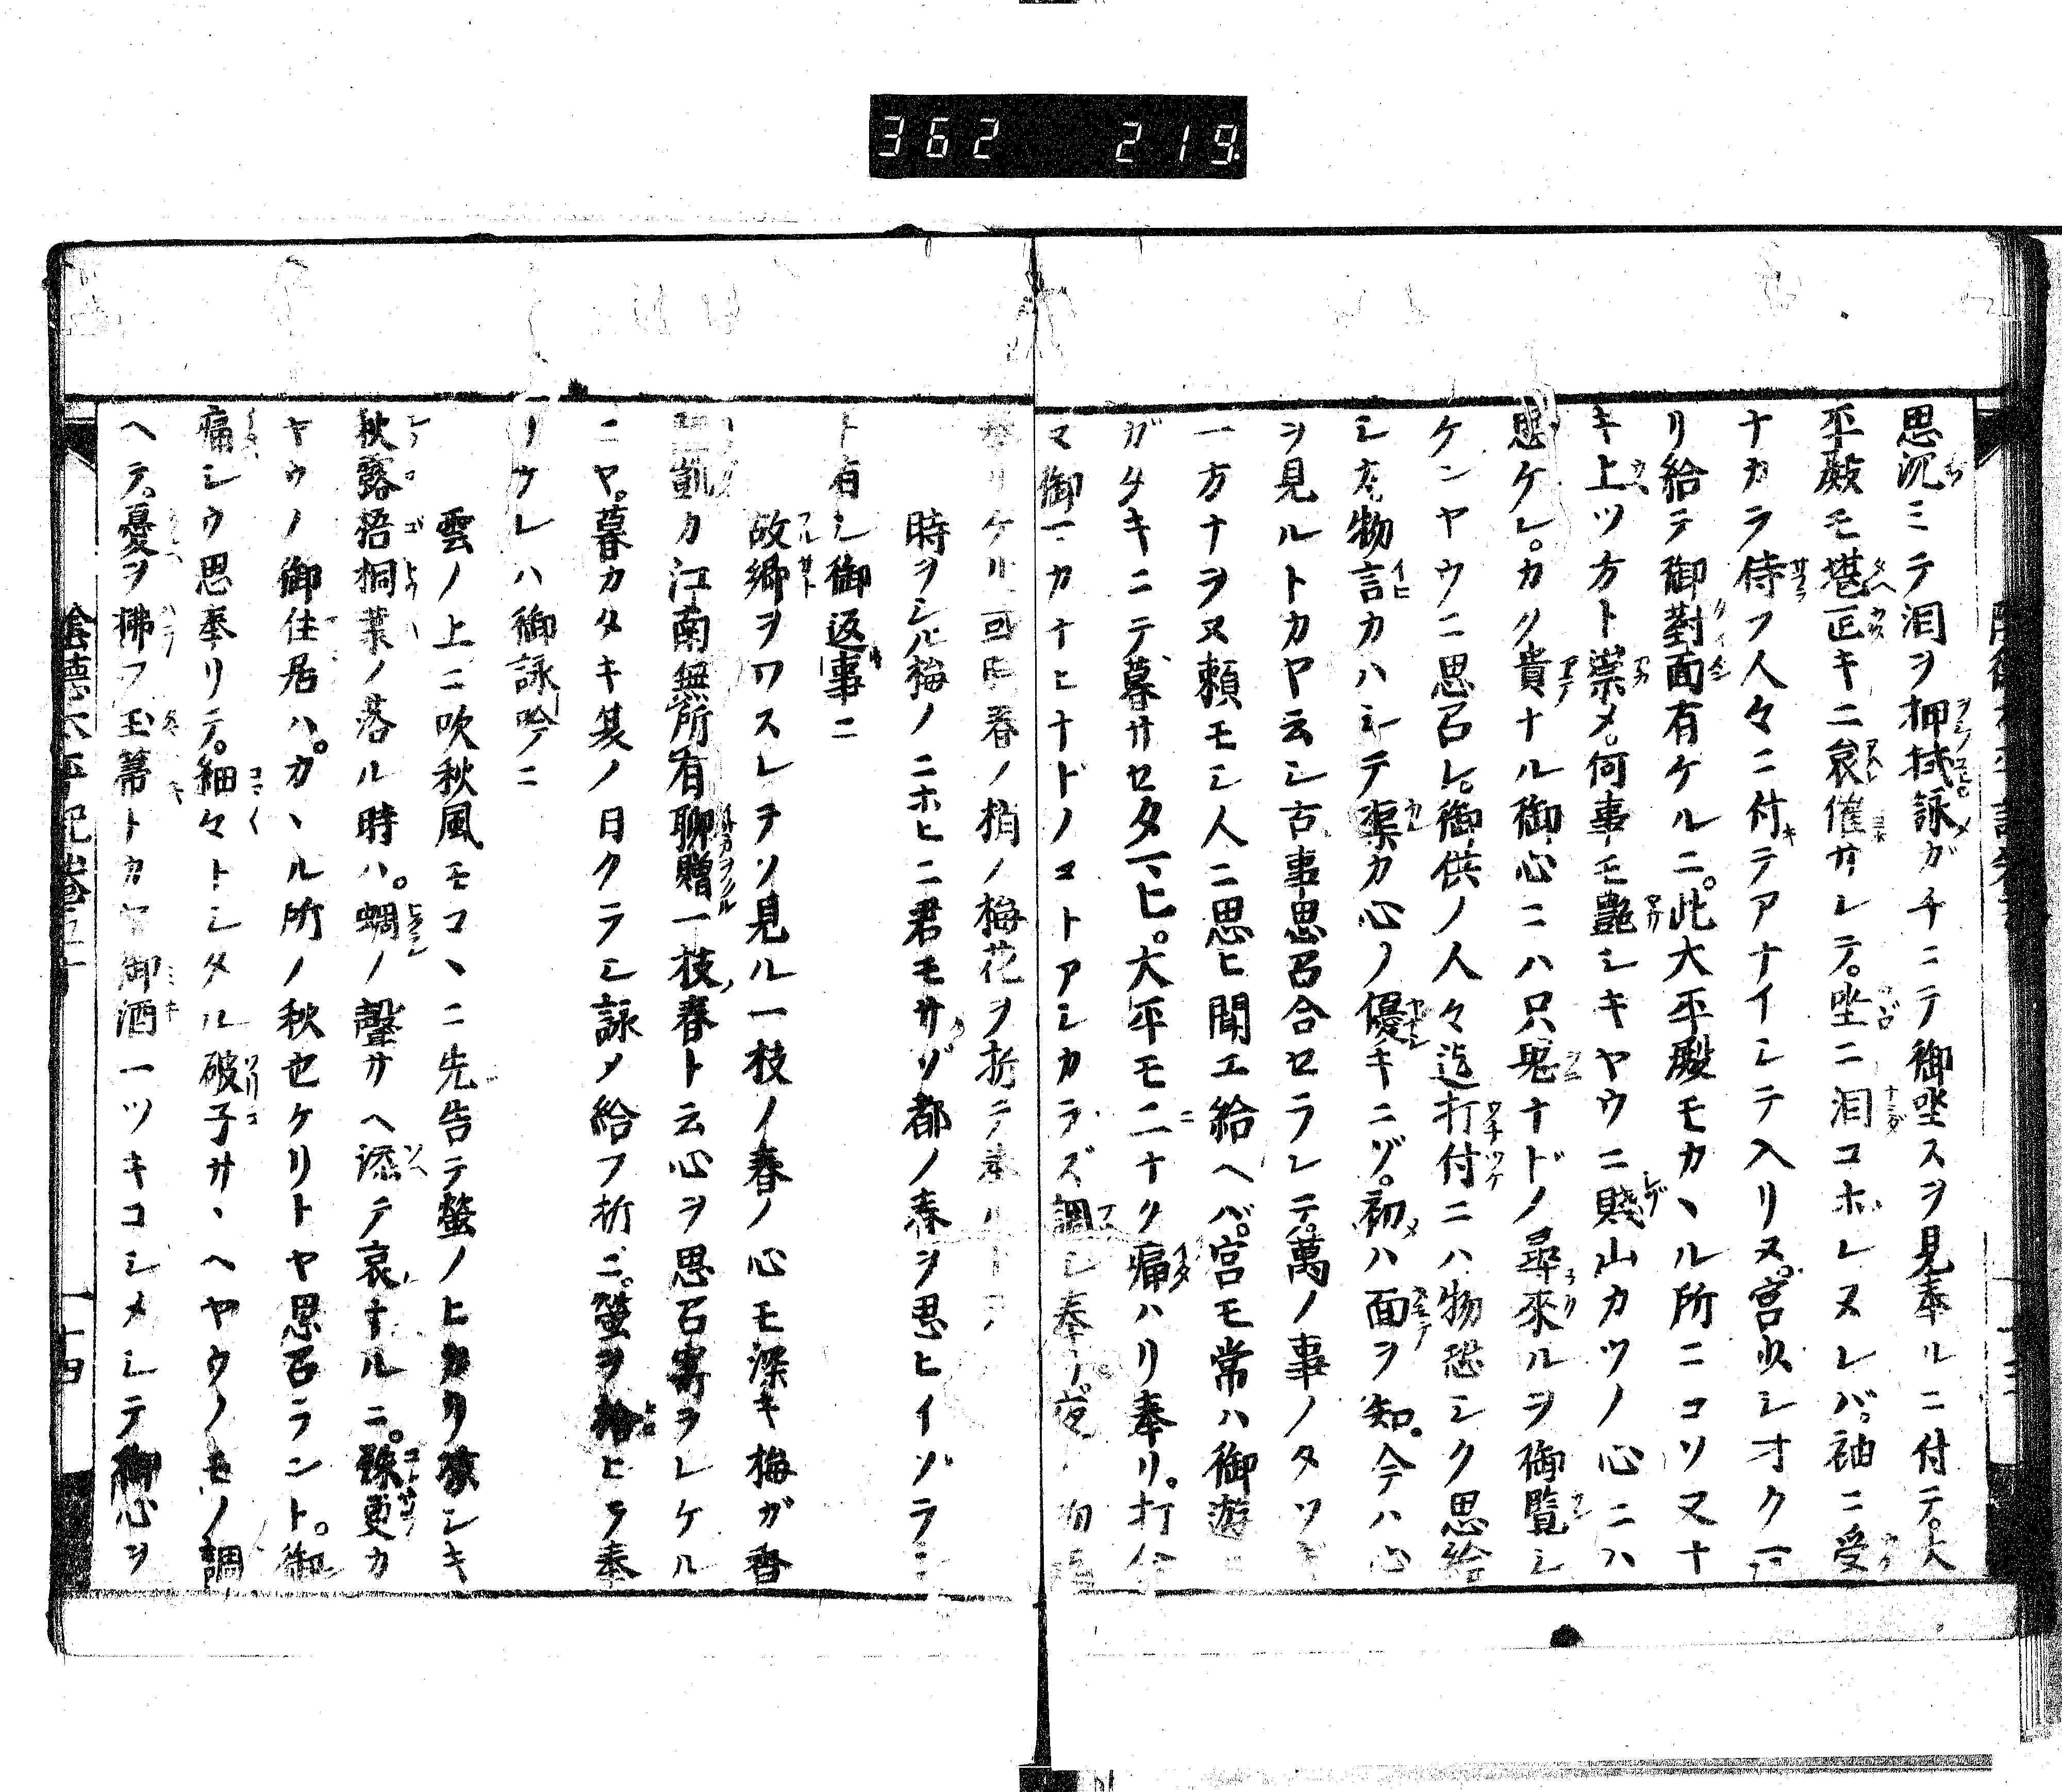 362 219
思沉ミテ泪ヲ押拭詠ガチニテ御坐スヲ見奉ルニ付テ大
平殿モ堪回キニ哀催サレテ。坐ニ泪コホレヌレバ。袖ニ受
ナカラ侍フ人々ニ付テアナイシテ入リヌ。宮少シオク
リ給テ御對面有ケルニ。此大平殿モカヽル所ニコソ又ナ
キ上ツ方ト崇メ。何事モ艶シキヤウニ賤山カツノ心ニハ
思ケレ。カク貴ナル御心ニハ只鬼ナドノ尋來ルヲ御覧シ
ケンヤウニ思召レ。御供ノ人々迄打付ニハ物恐シク思給
シカ。物言カハシテ渠カ心ノ優キニゾ。初ハ面ヲ知。今ハ心
ヲ見ルトカヤ云シ古事思召合セラレテ。萬ノ事ノタツキ
一方ナヲヌ頼モシ人ニ思ヒ聞エ給ヘバ。宮モ常ハ御遊ニ
ガタキニテ暮サセタマヒ。大平モ二ナク痛ハリ奉リ。打
マ御マカナヒナドノコトアシカラズ調シ奉
リケル 春ノ梢ノ梅花ヲ折テ奉ル
時ヲシル梅ノニホヒニ君モサゾ都ノ春ヲ思ヒイヅラン
ト有シ御返事ニ
故郷ヲワスレヲソ見ル一枝ノ春ノ心モ深キ梅ガ香
凱カ江南無所有聊贈一枝春ト云心ヲ思召寄ラレケル
ニヤ。暮カタキ夏ノ日クラシ詠メ給フ折ニ。螢ヲ拾ヒテ奉
リケレハ御詠吟ニ
雲ノ上ニ吹秋風モコヽニ先告テ螢ノヒカリ凉シキ
秋露梧桐葉ノ落ル時ハ。蜩ノ聲サヘ添テ哀ナルニ。殊更カ
ヤウノ御住居ハ。カヽル所ノ秋也ケリトヤ思召ラント。御
痛シウ思奉リテ。細々トシタル破子サヽヘヤウノモノ調
ヘテ。憂ヲ拂フ玉箒トカヤ御酒一ツキコシメシテ御心ヲ